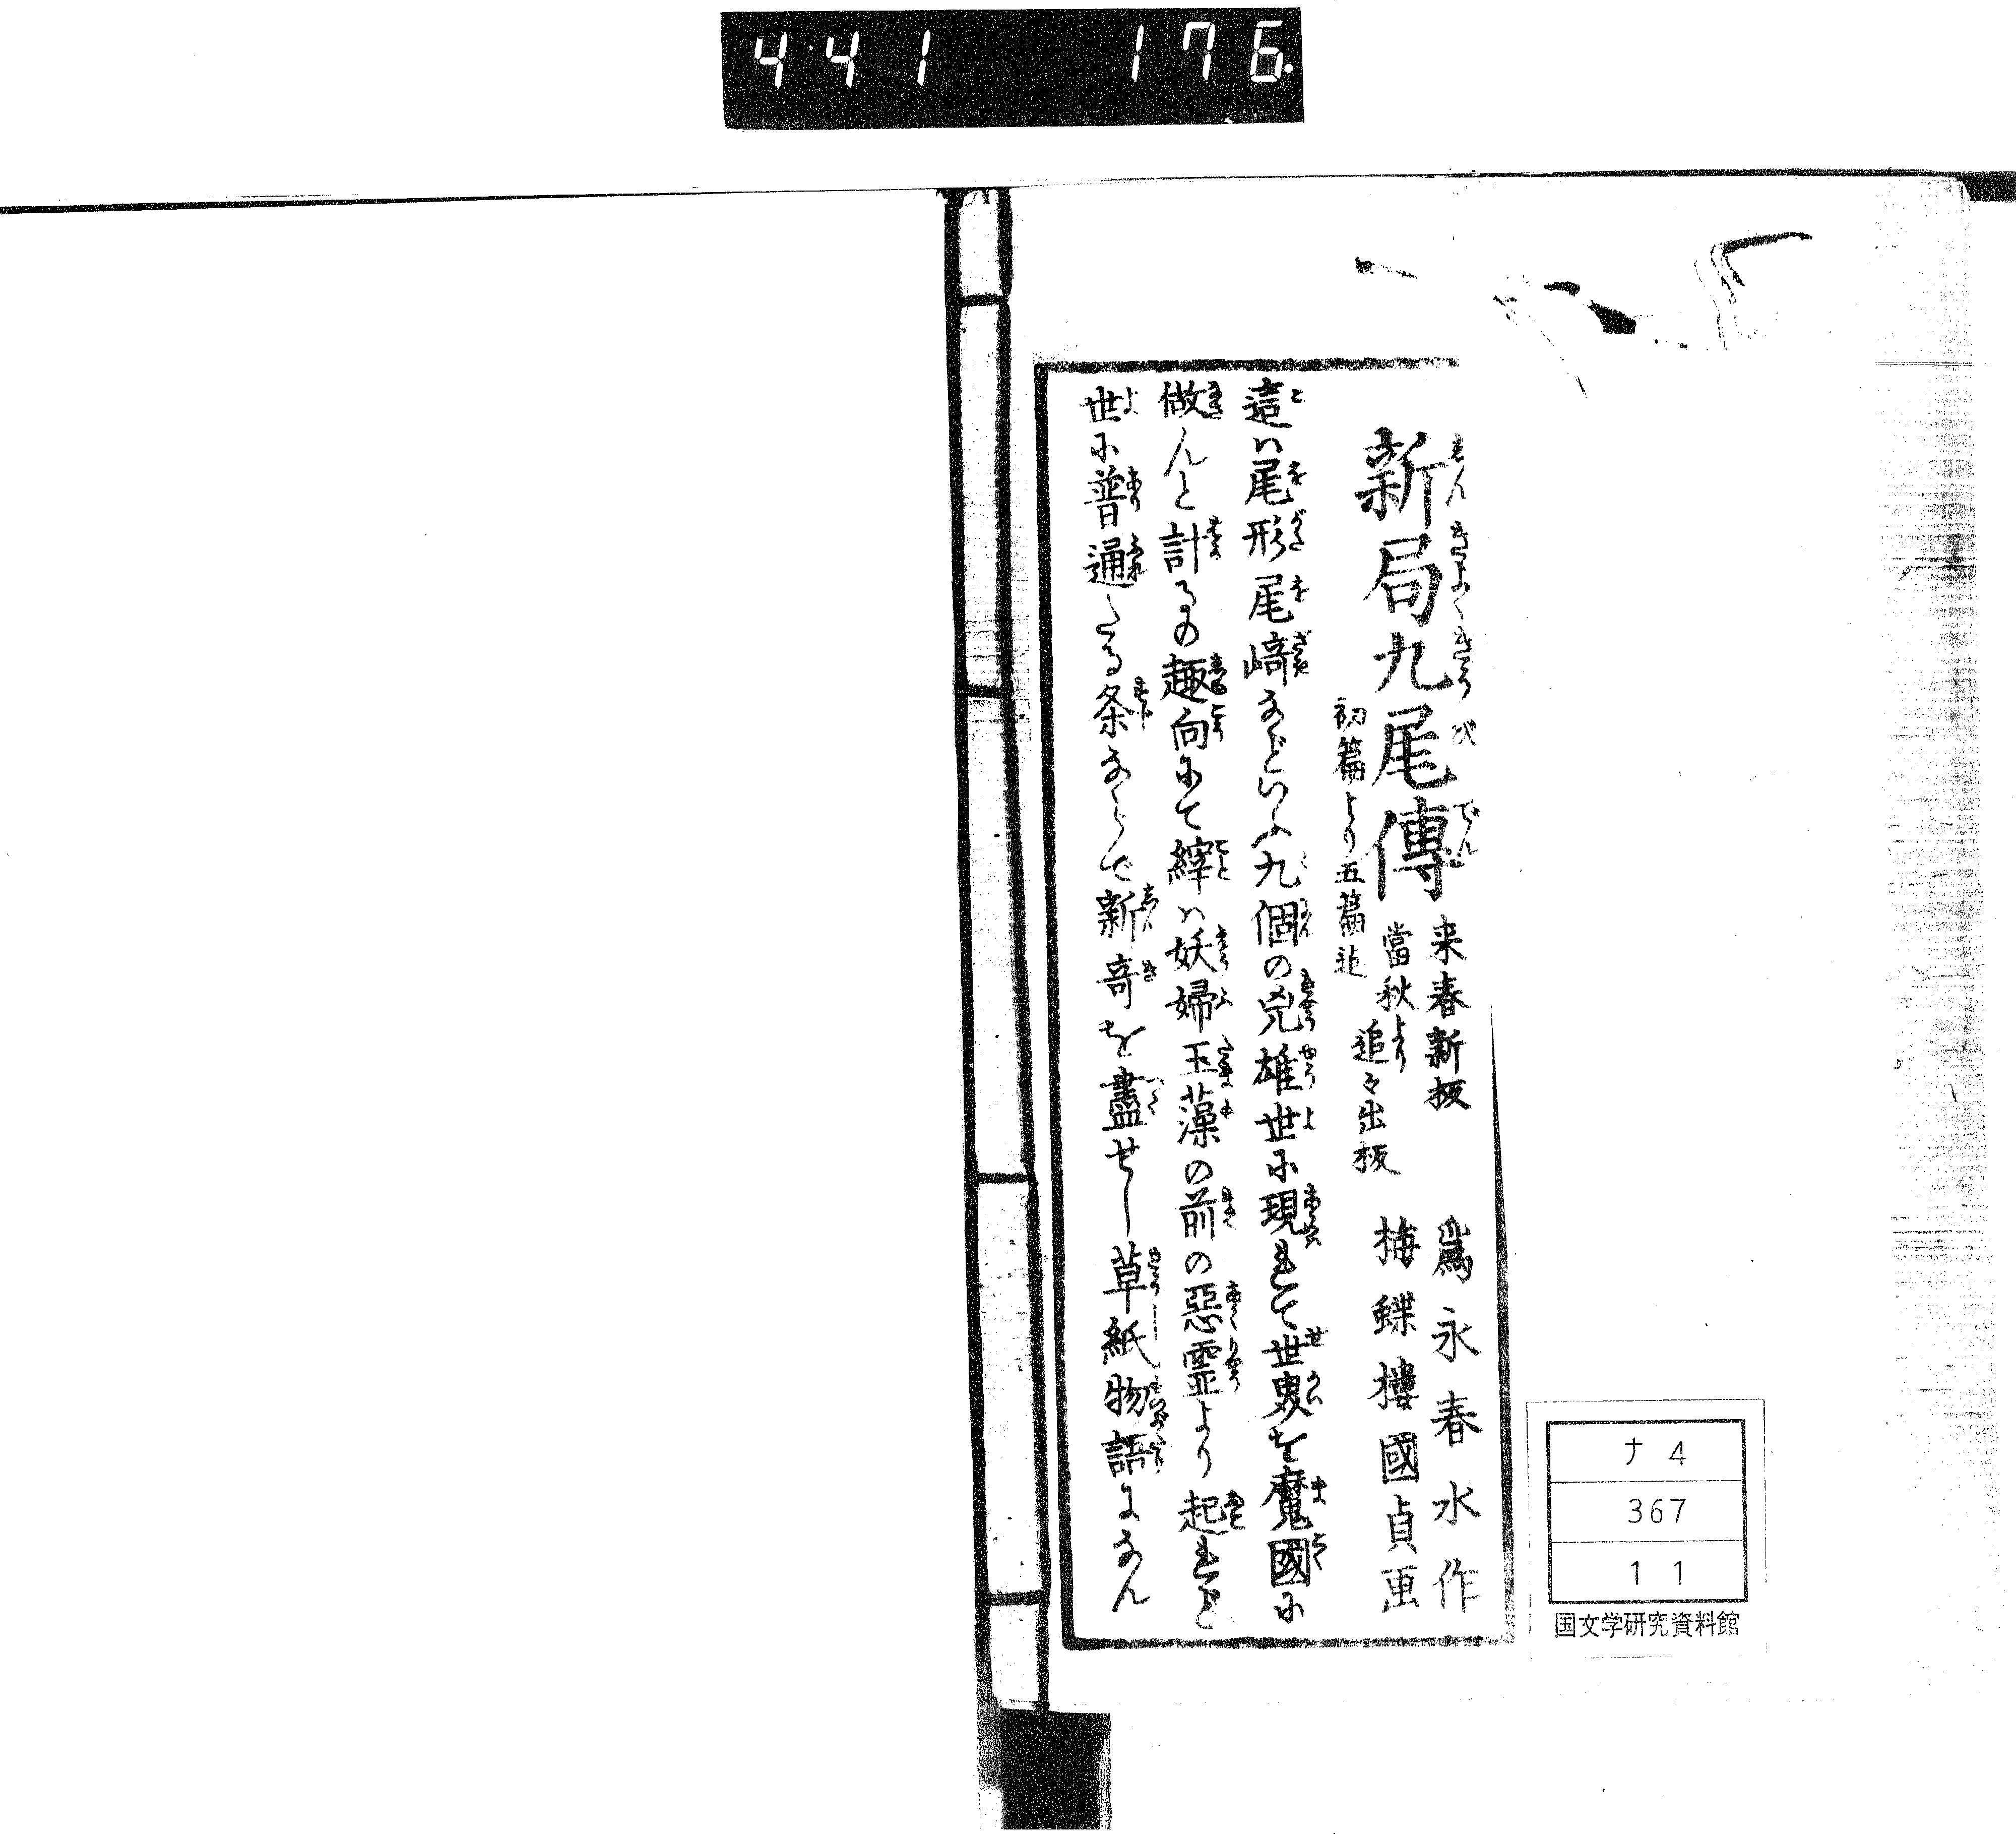 441 176.
新局九尾傳
しんきよくきうびでん
来春新板
當秋より追々出板
初篇より五篇迄
為永春水作
梅蝶楼國貞画
這ハ尾形尾﨑などいふ九個の兇雄世に現れて世界を魔國に
做んと計るの趣向にて縡ハ妖婦玉藻の前の惡霊より起れど
世に普通たる条ならで新奇を盡せし草紙物語になん
ナ4
367
11
国文学研究資料館